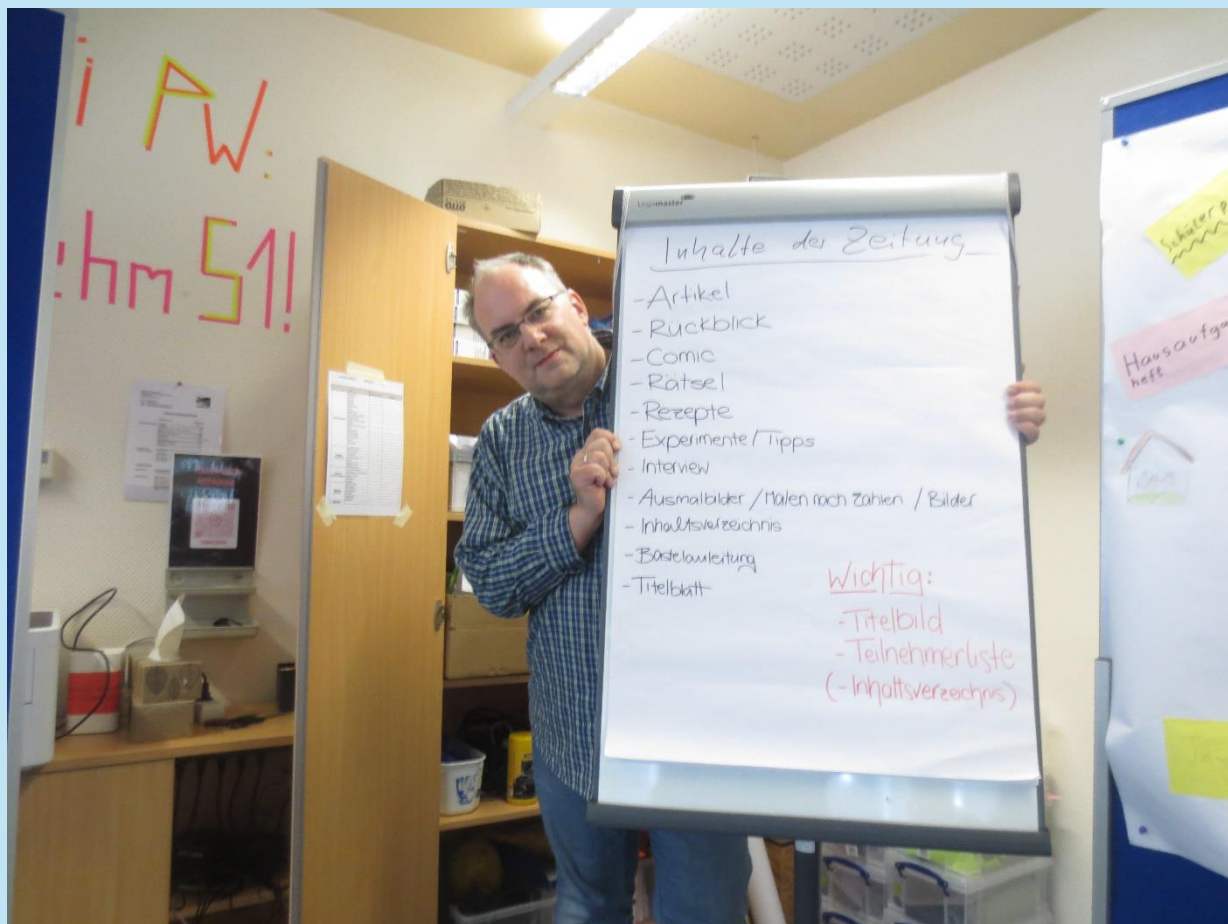 i PW:
ehm 51!
Legamaster
Inhalte der Zeitung
- Artikel
- Rückblick
- Comic
- Rätsel
- Rezepte
- Experimente / Tipps
- Interview
- Ausmalbilder / Malen nach Zahlen / Bilder
- Inhaltsverzeichnis
- Bastelanleitung
- Titelblatt
Wichtig:
- Titelbild
- Teilnehmerliste
(- Inhaltsverzeichnis)
Hausaufga
heft